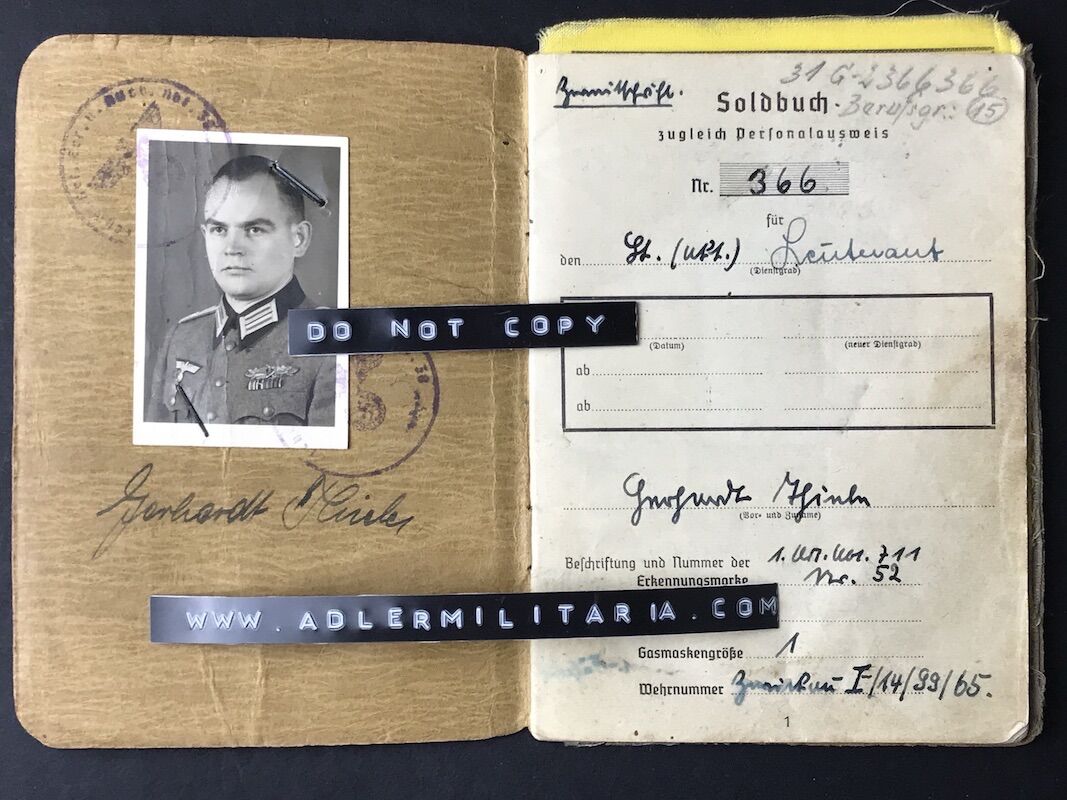 Gerhardt Thiele
Zweitschrift.
31 G-2366366
Soldbuch
Berufsgr.: 15
zugleich Personalausweis
Nr. 366
für
den Lt. (akt.) Leutenant
(Dienstgrad)
DO NOT COPY
(Datum) (neuer Dienstgrad)
ab
ab
Gerhardt Thiele
(Vor- und Zuname)
Beschriftung und Nummer der
Erkennungsmarke Nr. 52
WWW.ADLERMILITARIA.COM
Gasmaskengröße 1
Wehrnummer Zwickau I/14/99/65.
1